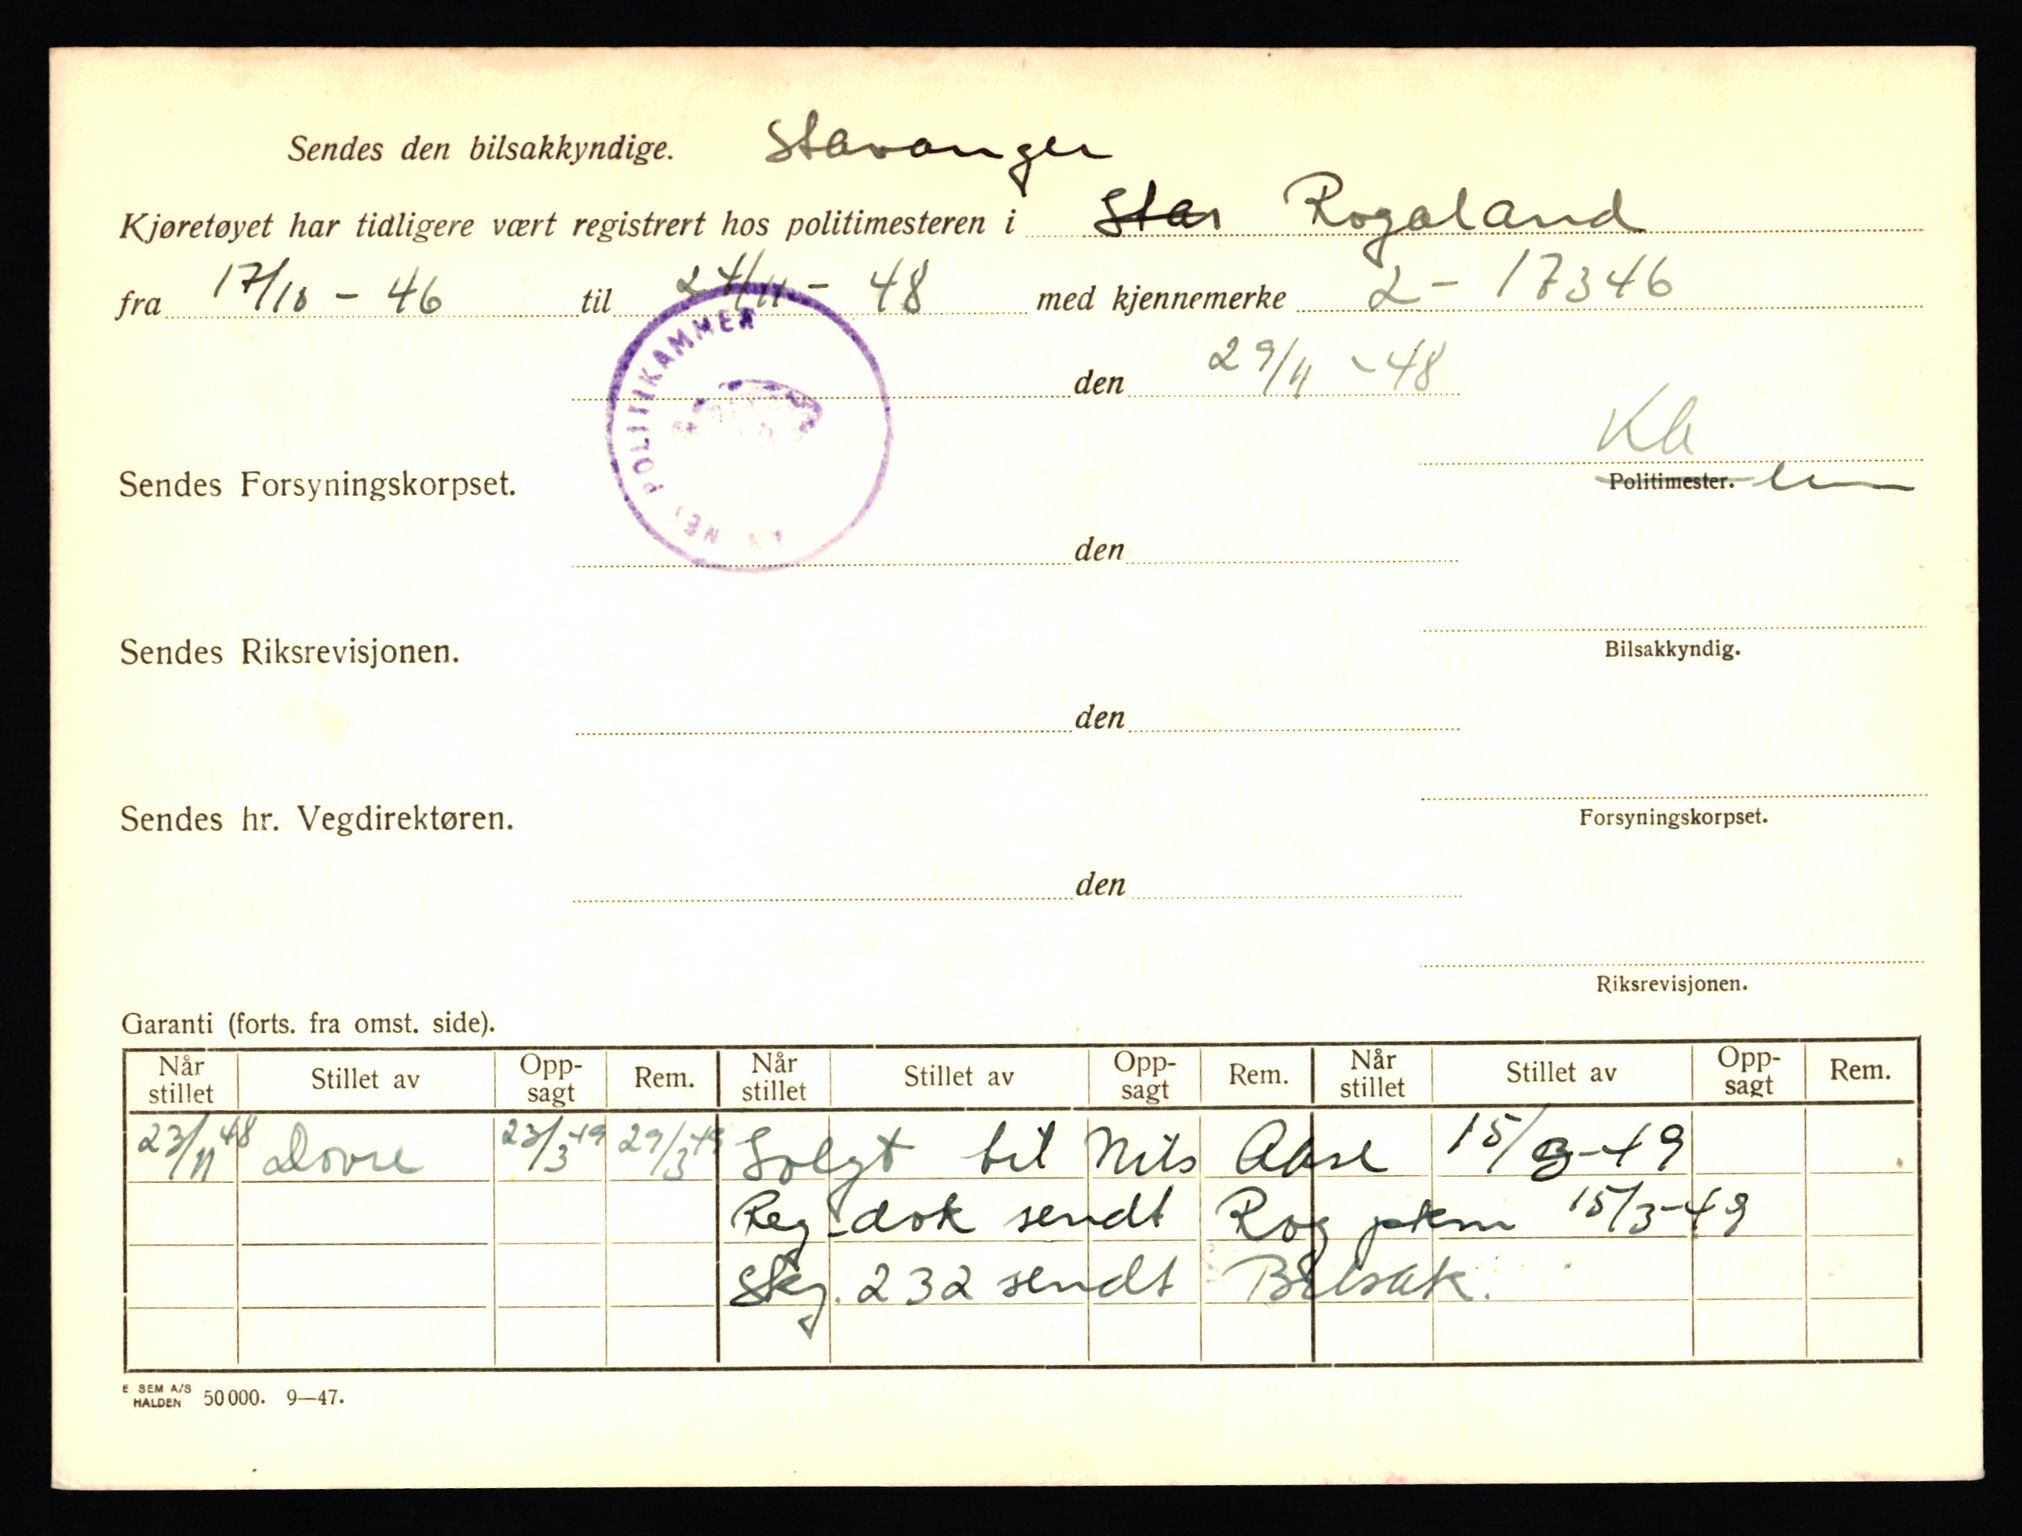 Sendes den bilsakkyndige. Stavanger
Kjøretøyet har tidligere vært registrert hos politimesteren i Rogaland
fra 17/10 - 46 til 24/11 - 48 med kjennemerke 2 - 17346
den 29/11 - 48
POLITIKAMMER
Sendes Forsyningskorpset.
Politimester.
den
Sendes Riksrevisjonen.
Bilsakkyndig.
den
Sendes hr. Vegdirektøren.
Forsyningskorpset.
den
Riksrevisjonen.
Garanti (forts. fra omst. side).
Når stillet Stillet av Opp-sagt Rem. Når stillet Stillet av Opp-sagt Rem. Når stillet Stillet av Opp-sagt Rem.
23/11 48 Dovre 23/3 49 29/3 49 Solgt til Nils Aase 15/3-49
Reg-dok sendt Rog pkm 15/3-49
Skj. 232 sendt Bilsak.
E SEM A/S HALDEN 50000. 9—47.